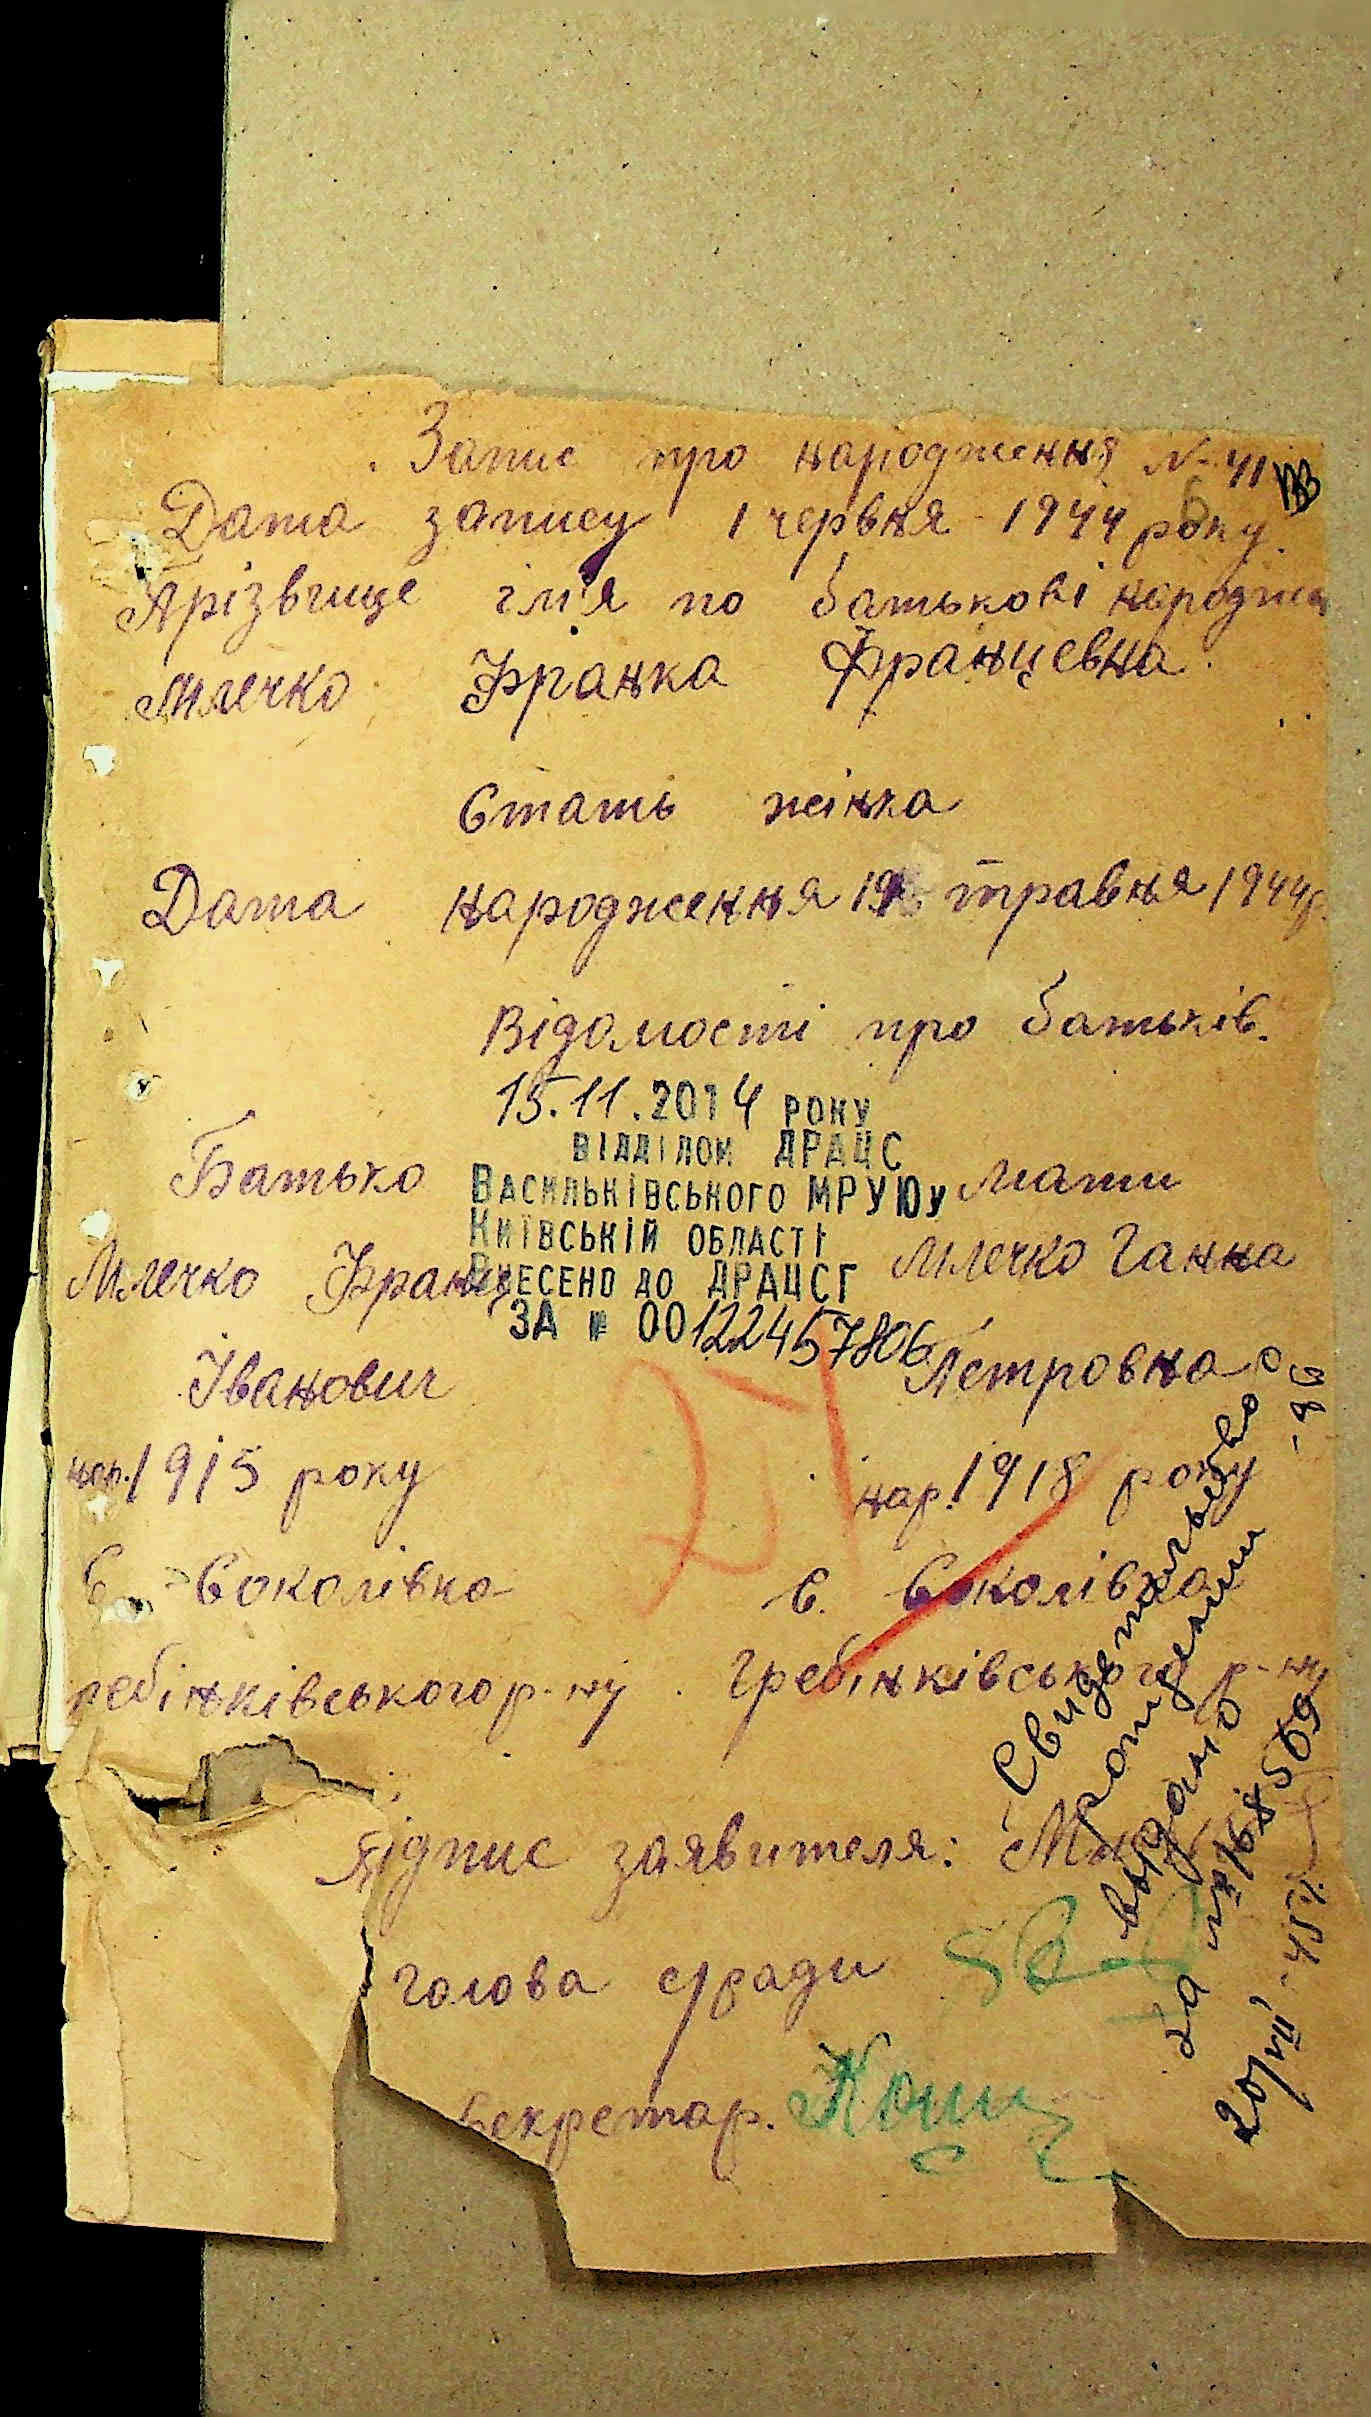 Запис про народження № 41
Дата запису 1 червня 1944 року.
Прізвище ім'я по батькові народж
Млечко Франка Францевна.
Стать жінка
Дата народження 19 травня 1944р.
Відомості про батьків.
15.11.2014 РОКУ
ВІДДІЛОМ ДРАЦС
ВАСИЛЬКІВСЬКОГО МРУЮ у
КИЇВСЬКІЙ ОБЛАСТІ
ВНЕСЕНО ДО ДРАЦСГ
ЗА № 00122457806
Батько Мати
Млечко Франц Млечко Ганна
Іванович Петровна
нар. 1915 року нар. 1918 року
с. Соколівка с. Соколівка
ребінківського р-ну Гребінківського р-ну
21
Підпис заявителя:
голова с/ради
секретар.
Свидетельство о
рождении
выдано
за № 168509
20/VII-45г.